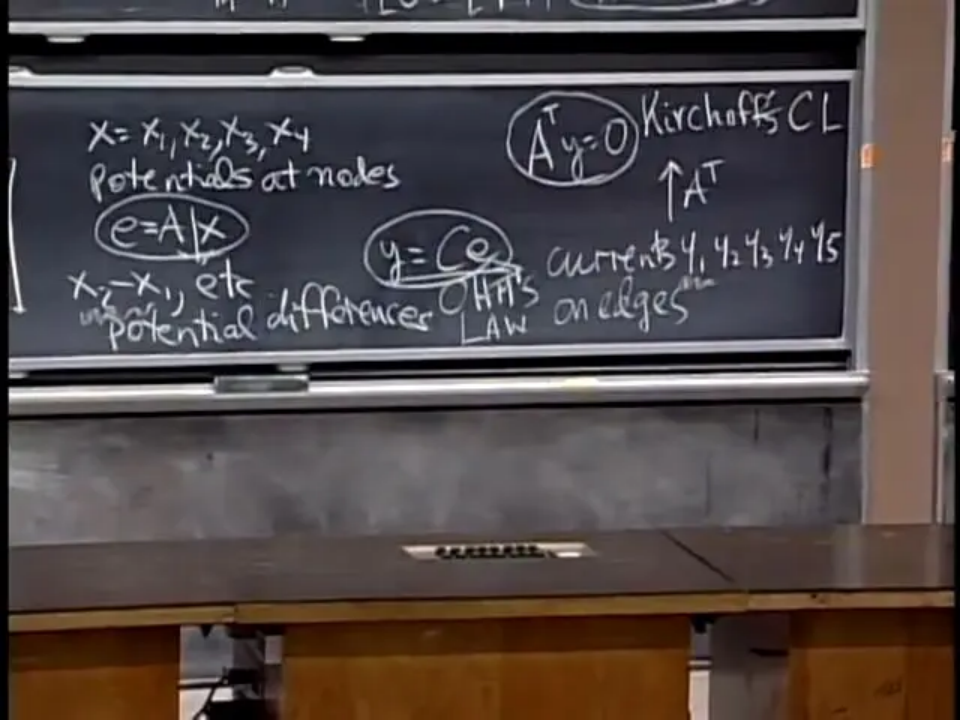 x = x₁, x₂, x₃, x₄
potentials at nodes
e = Ax
x₂-x₁, etc
potential differences
y = Ce
OHM'S
LAW
Aᵀy = 0 Kirchoff's CL
↑ Aᵀ
currents y₁ y₂ y₃ y₄ y₅
on edges